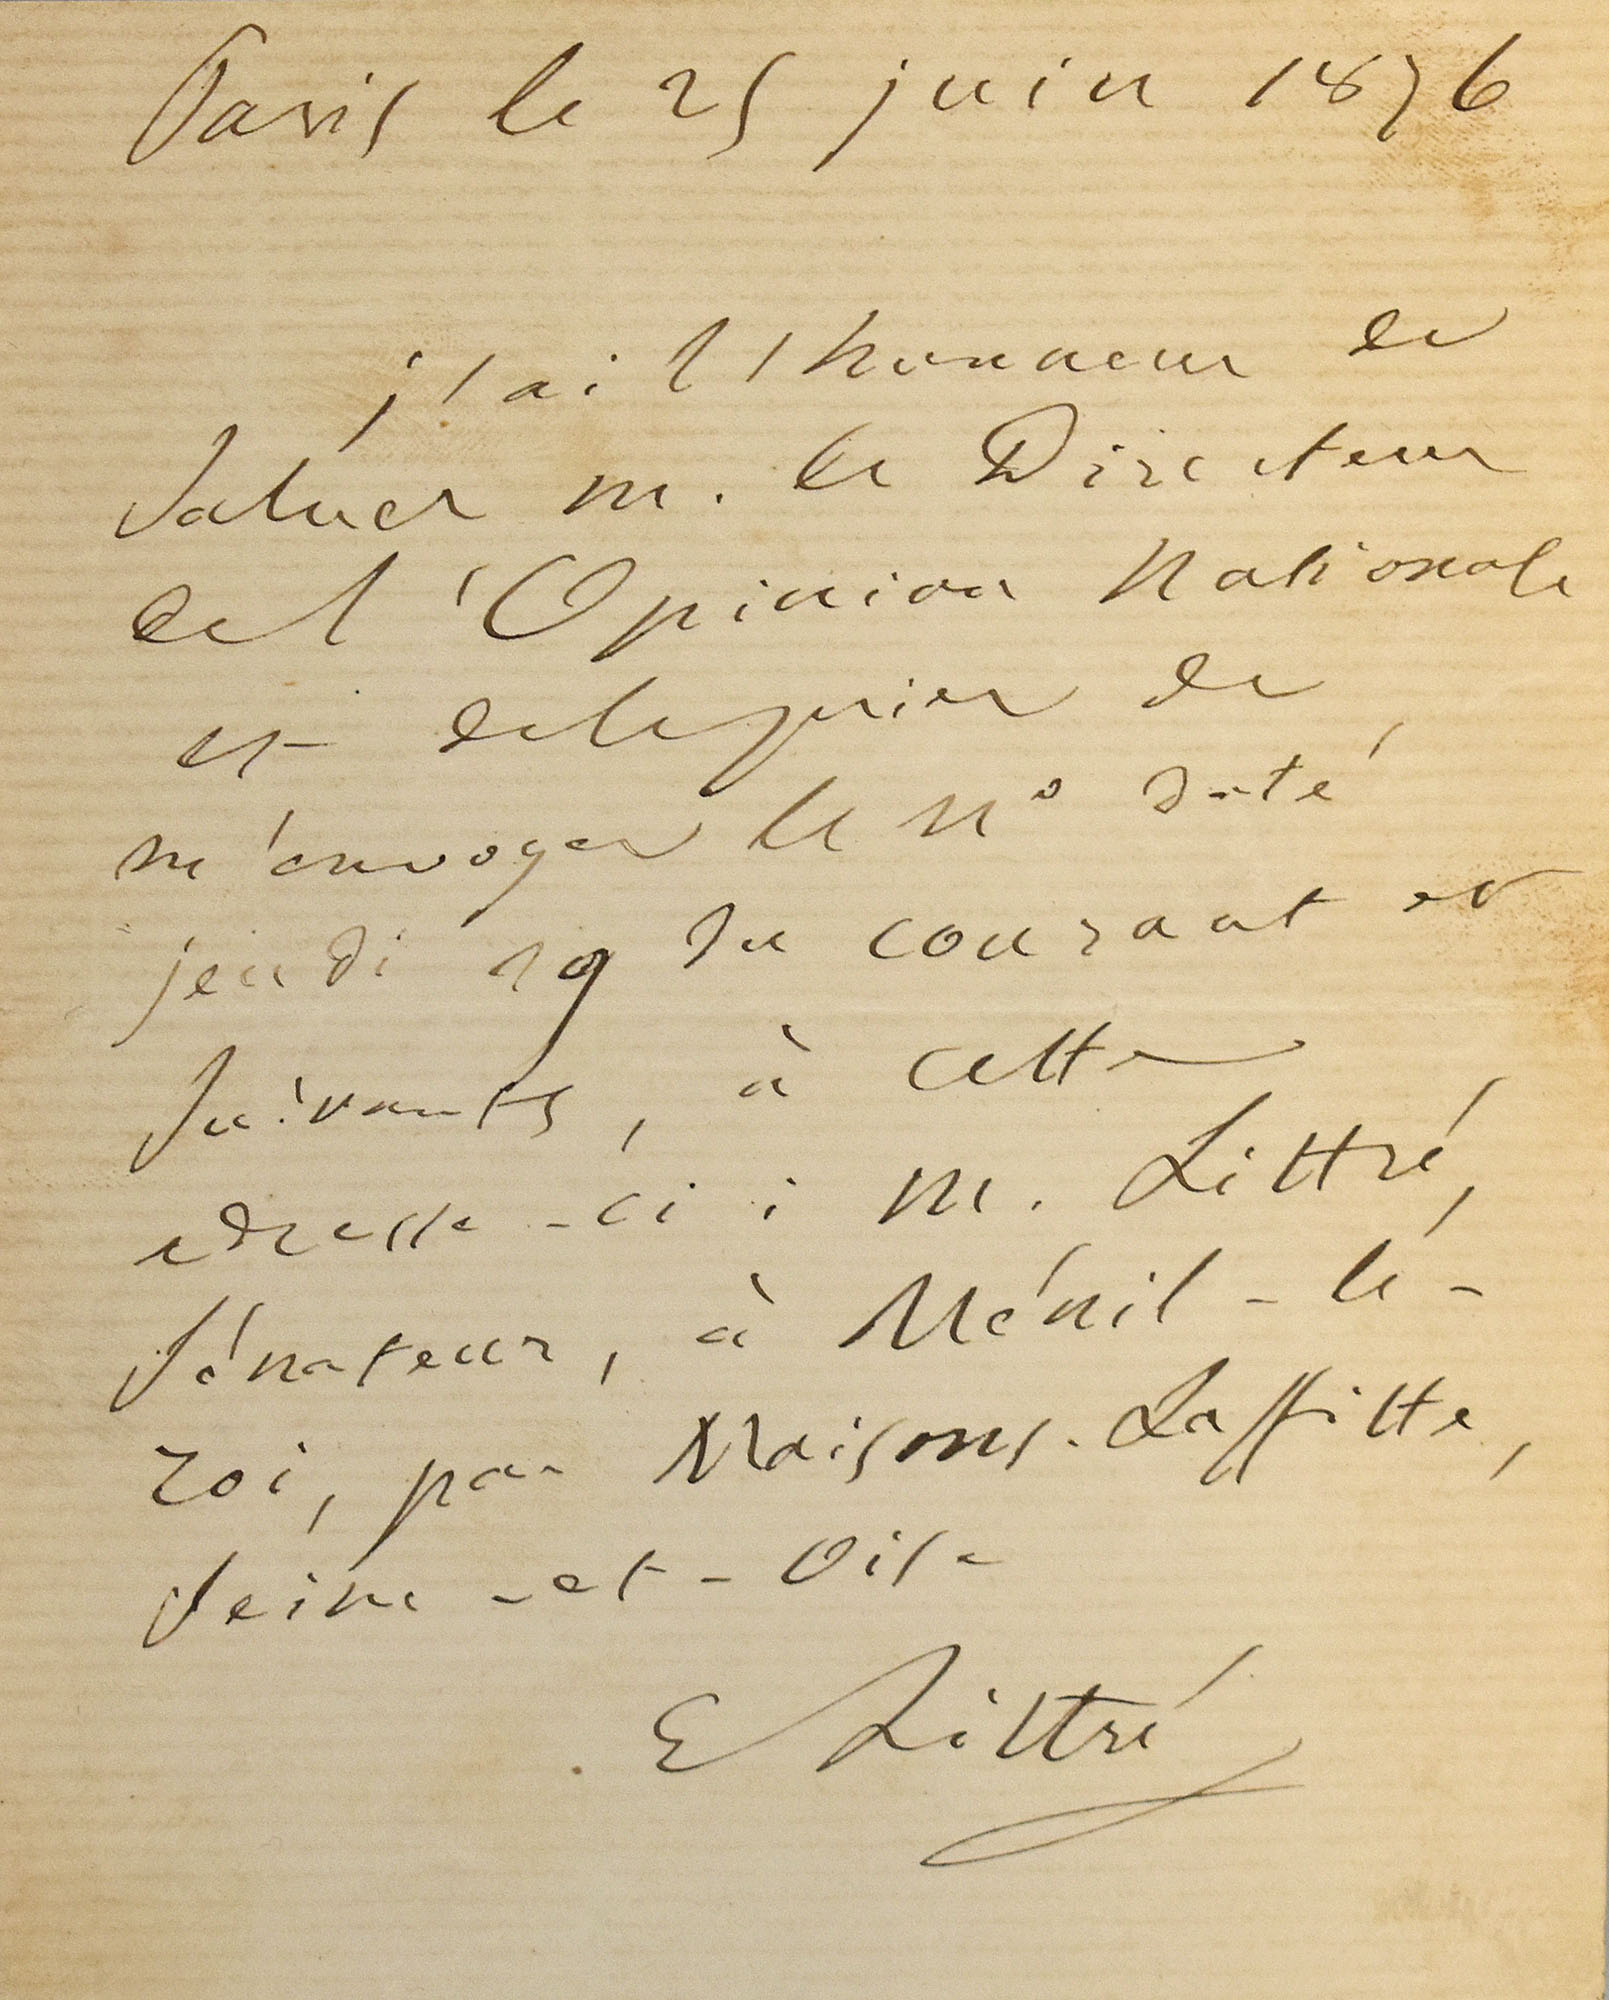 Paris le 25 juin 1876
j'ai l'honneur de
saluer m. le Directeur
de l'Opinion nationale
et de le prier de
m'envoyer le n° daté
jeudi 29 du courant et
suivants, à cette
adresse-ci : m. Littré,
sénateur, à Ménil-le-
roi, par Maisons-Laffitte,
Seine-et-Oise
E Littré